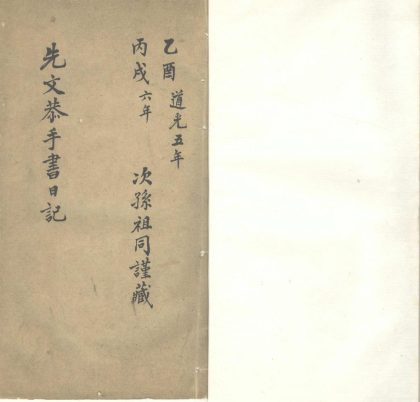 乙酉 道光五年
丙戌 六年
次孫祖同謹藏
先文恭手書日記